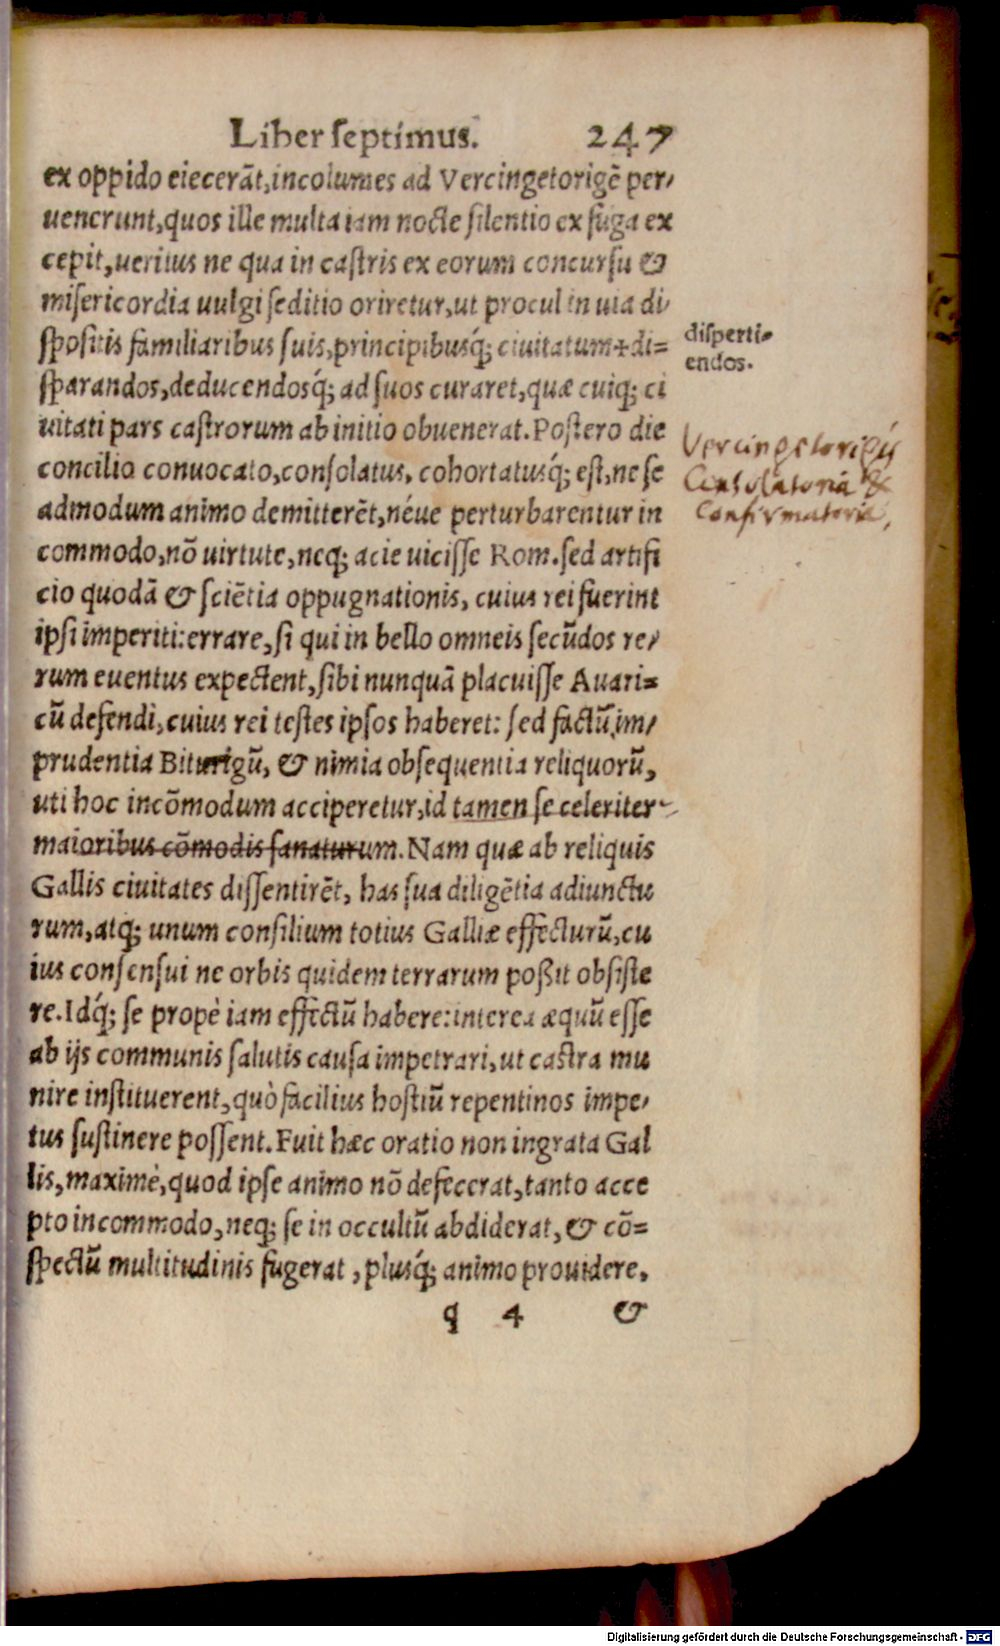 Liber septimus. 247
ex oppido eiecerāt, incolumes ad Vercingetorigē per/
uenerunt, quos ille multa iam nocte silentio ex fuga ex
cepit, ueritus ne qua in castris ex eorum concursu &
misericordia uulgi seditio oriretur, ut procul in uia di/
spositis familiaribus suis, principibusq́; ciuitatum + di=
sparandos, deducendosq́; ad suos curaret, quæ cuiq; ci
uitati pars castrorum ab initio obuenerat. Postero die
concilio conuocato, consolatus, cohortatusq́; est, ne se
admodum animo demitterēt, néue perturbarentur in
commodo, nō uirtute, neq; acie uicisse Rom. sed artifi
cio quodā & sciētia oppugnationis, cuius rei fuerint
ipsi imperiti: errare, si qui in bello omneis secūdos re/
rum euentus expectent, sibi nunquā placuisse Auari=
cū defendi, cuius rei testes ipsos haberet: sed factū, im/
prudentia Biturigū, & nimia obsequentia reliquorū,
uti hoc incōmodum acciperetur, id tamen se celeriter
maioribus cōmodis sanaturum. Nam quæ ab reliquis
Gallis ciuitates dissentirēt, has sua diligētia adiunctu
rum, atq; unum consilium totius Galliæ effecturū, cu
ius consensui ne orbis quidem terrarum poßit obsiste
re. Idq́; se propè iam effectū habere: interea æquū esse
ab ijs communis salutis causa impetrari, ut castra mu
nire instituerent, quò facilius hostiū repentinos impe/
tus sustinere possent. Fuit hæc oratio non ingrata Gal
lis, maximè, quod ipse animo nō defecerat, tanto acce
pto incommodo, neq; se in occultū abdiderat, & cō=
spectū multitudinis fugerat, plusq́; animo prouidere,
q 4 &
disperti=
endos.
Vercingetorigis
Consolatoria &
Confirmatoria,
Digitalisierung gefördert durch die Deutsche Forschungsgemeinschaft - DFG